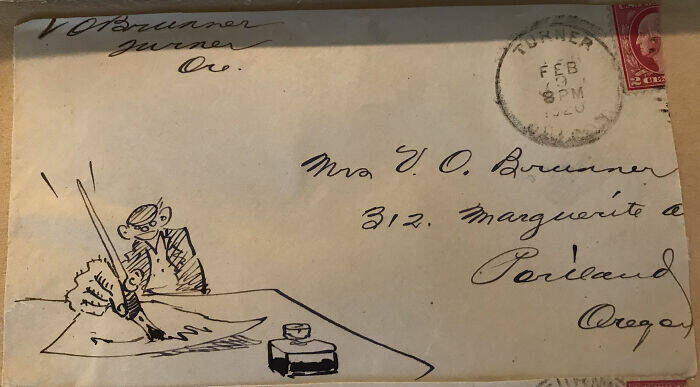 V O Brunner
Turner
Ore.
TURNER
FEB
8 PM
1920
OREGON
Mrs V. O. Brunner
312. Marguerite a
Portland
Oregon